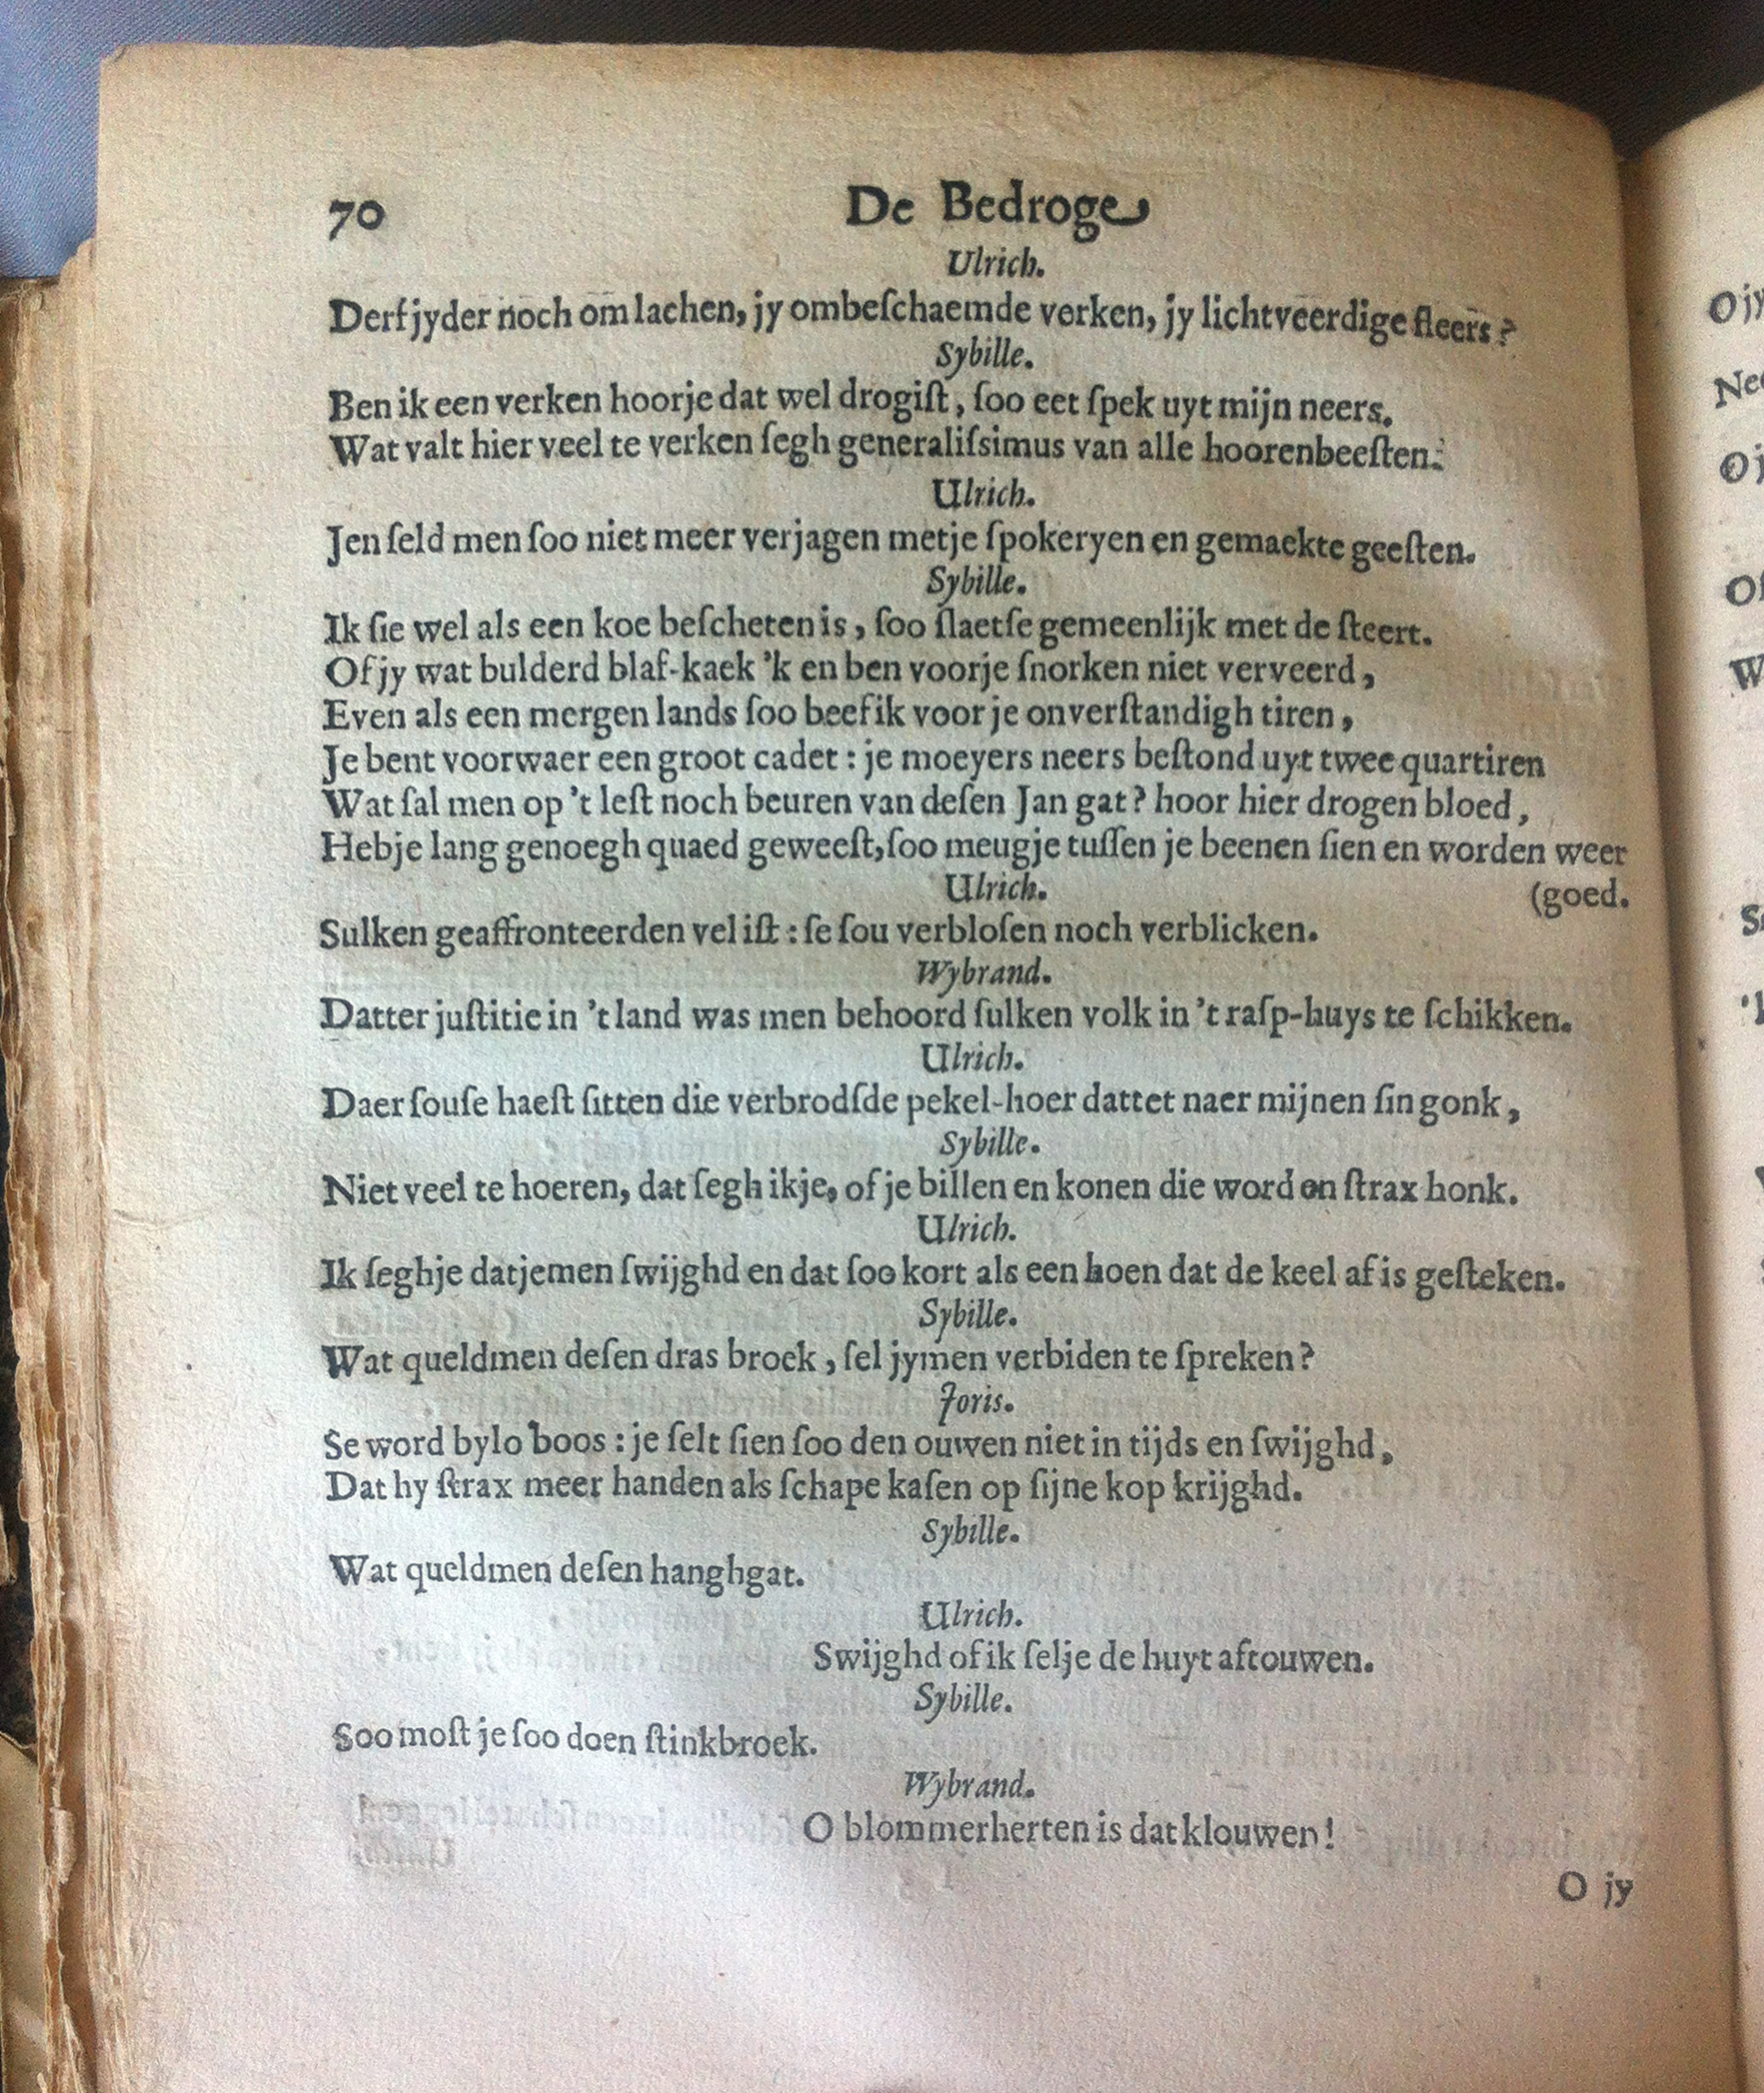 70 De Bedroge
Ulrich.
Derf jyder noch om lachen, jy ombeſchaemde verken, jy lichtveerdige ſleers?
Sybille.
Ben ik een verken hoorje dat wel drogiſt, ſoo eet ſpek uyt mijn neers.
Wat valt hier veel te verken ſegh generaliſsimus van alle hoorenbeeſten.
Ulrich.
Jen ſeld men ſoo niet meer verjagen metje ſpokeryen en gemaekte geeſten.
Sybille.
Ik ſie wel als een koe beſcheten is, ſoo ſlaetſe gemeenlijk met de ſteert.
Of jy wat bulderd blaf-kaek 'k en ben voorje ſnorken niet verveerd,
Even als een mergen lands ſoo beef ik voor je onverſtandigh tiren,
Je bent voorwaer een groot cadet: je moeyers neers beſtond uyt twee quartiren
Wat ſal men op 't leſt noch beuren van deſen Jan gat? hoor hier drogen bloed,
Hebje lang genoegh quaed geweeſt, ſoo meugje tuſſen je beenen ſien en worden weer
Ulrich. (goed.
Sulken geaffronteerden vel iſt: ſe ſou verbloſen noch verblicken.
Wybrand.
Datter juſtitie in 't land was men behoord ſulken volk in 't raſp-huys te ſchikken.
Ulrich.
Daer ſouſe haeſt ſitten die verbrodſde pekel-hoer dattet naer mijnen ſin gonk,
Sybille.
Niet veel te hoeren, dat ſegh ikje, of je billen en konen die word en ſtrax honk.
Ulrich.
Ik ſeghje datjemen ſwijghd en dat ſoo kort als een hoen dat de keel af is geſteken.
Sybille.
Wat queldmen deſen dras broek, ſel jymen verbiden te ſpreken?
Joris.
Se word bylo boos: je ſelt ſien ſoo den ouwen niet in tijds en ſwijghd,
Dat hy ſtrax meer handen als ſchape kaſen op ſijne kop krijghd.
Sybille.
Wat queldmen deſen hanghgat.
Ulrich.
Swijghd of ik ſelje de huyt aftouwen.
Sybille.
Soo moſt je ſoo doen ſtinkbroek.
Wybrand.
O blommerherten is dat klouwen!
O jy